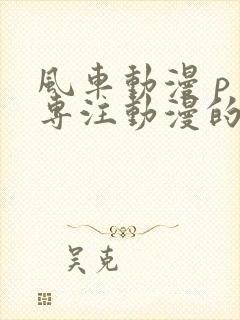 風車動漫p
專注動漫的
吴克